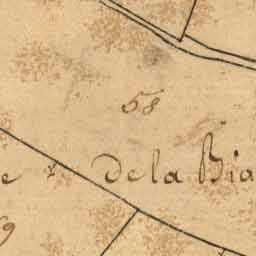 58
de la Bia
9